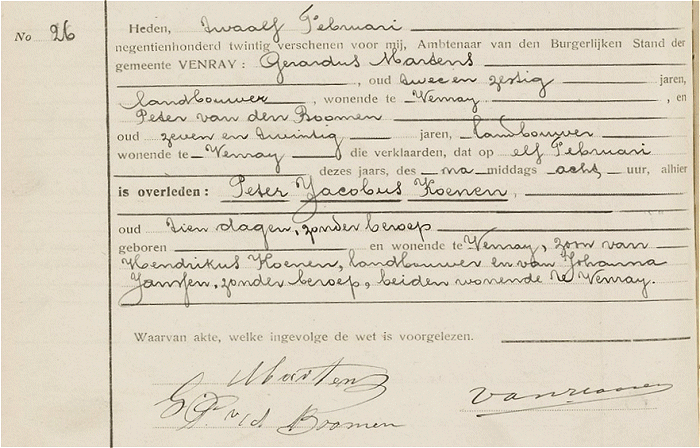 No 26
Heden, twaalf Februari
negentienhonderd twintig verschenen voor mij, Ambtenaar van den Burgerlijken Stand der
gemeente VENRAY: Gerardus Martens
, oud twee en zestig jaren,
landbouwer, wonende te Venray, en
Peter van den Boomen
oud zeven en twintig jaren, landbouwer
wonende te Venray die verklaarden, dat op elf Februari
dezes jaars, des na middags acht uur, alhier
is overleden: Peter Jacobus Koenen,
oud tien dagen, zonder beroep
geboren en wonende te Venray, zoon van
Hendrikus Koenen, landbouwer en van Johanna
Janssen, zonder beroep, beiden wonende te Venray.
Waarvan akte, welke ingevolge de wet is voorgelezen.
G Martens
P. v/d Boomen